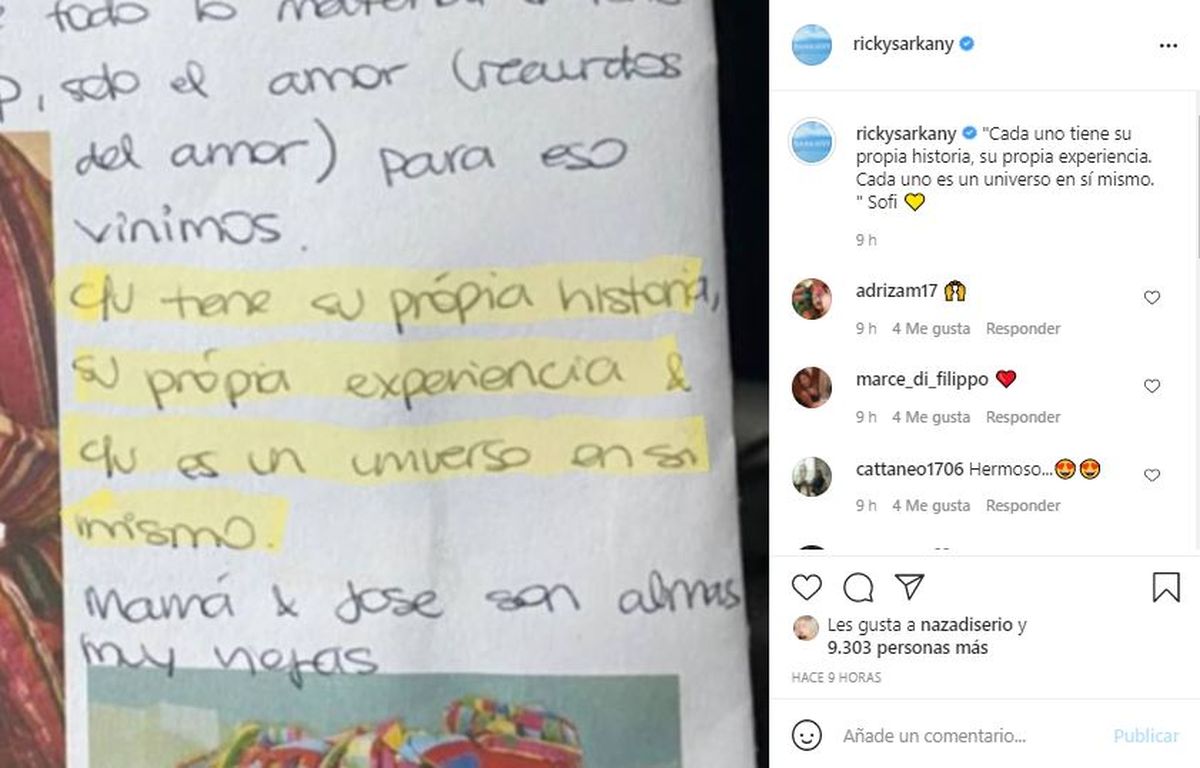 todo lo
, solo el amor (recuerdos
del amor) para eso
vinimos.
c/u tiene su própia historia,
su própia experiencia &
c/u es un universo en si
mismo.
Mamá & Jose son almas
muy viejas
rickysarkany
rickysarkany "Cada uno tiene su
propia historia, su propia experiencia.
Cada uno es un universo en sí mismo.
" Sofi 💛
9 h
adrizam17 🙌
9 h 4 Me gusta Responder
marce_di_filippo ❤️
9 h 4 Me gusta Responder
cattaneo1706 Hermoso...😍😍
9 h 4 Me gusta Responder
Les gusta a nazadiserio y
9.303 personas más
HACE 9 HORAS
Añade un comentario... Publicar